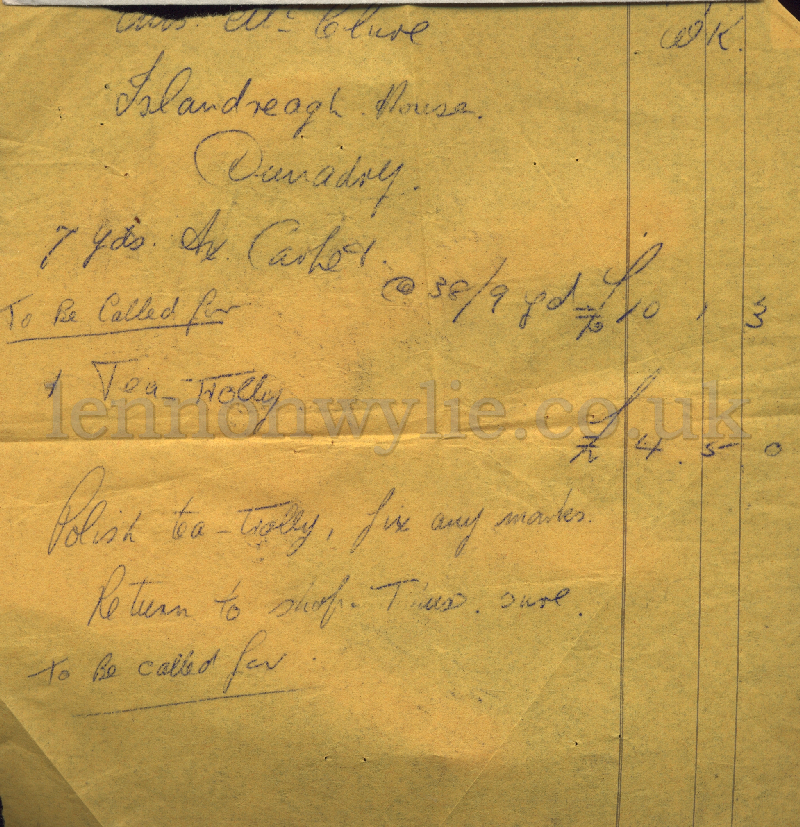 Mrs. Mc Clure
WK.
Islandreagh House.
Dunadry.
7 yds. Ax. Carpet.
@ 38/9 yd £ 10 , 3
To Be Called for
1 Tea-Trolly
lennonwylie.co.uk
£ 4. 5 0
Polish tea-Trolly, fix any marks.
Return to shop. Thurs. sure.
To Be called for